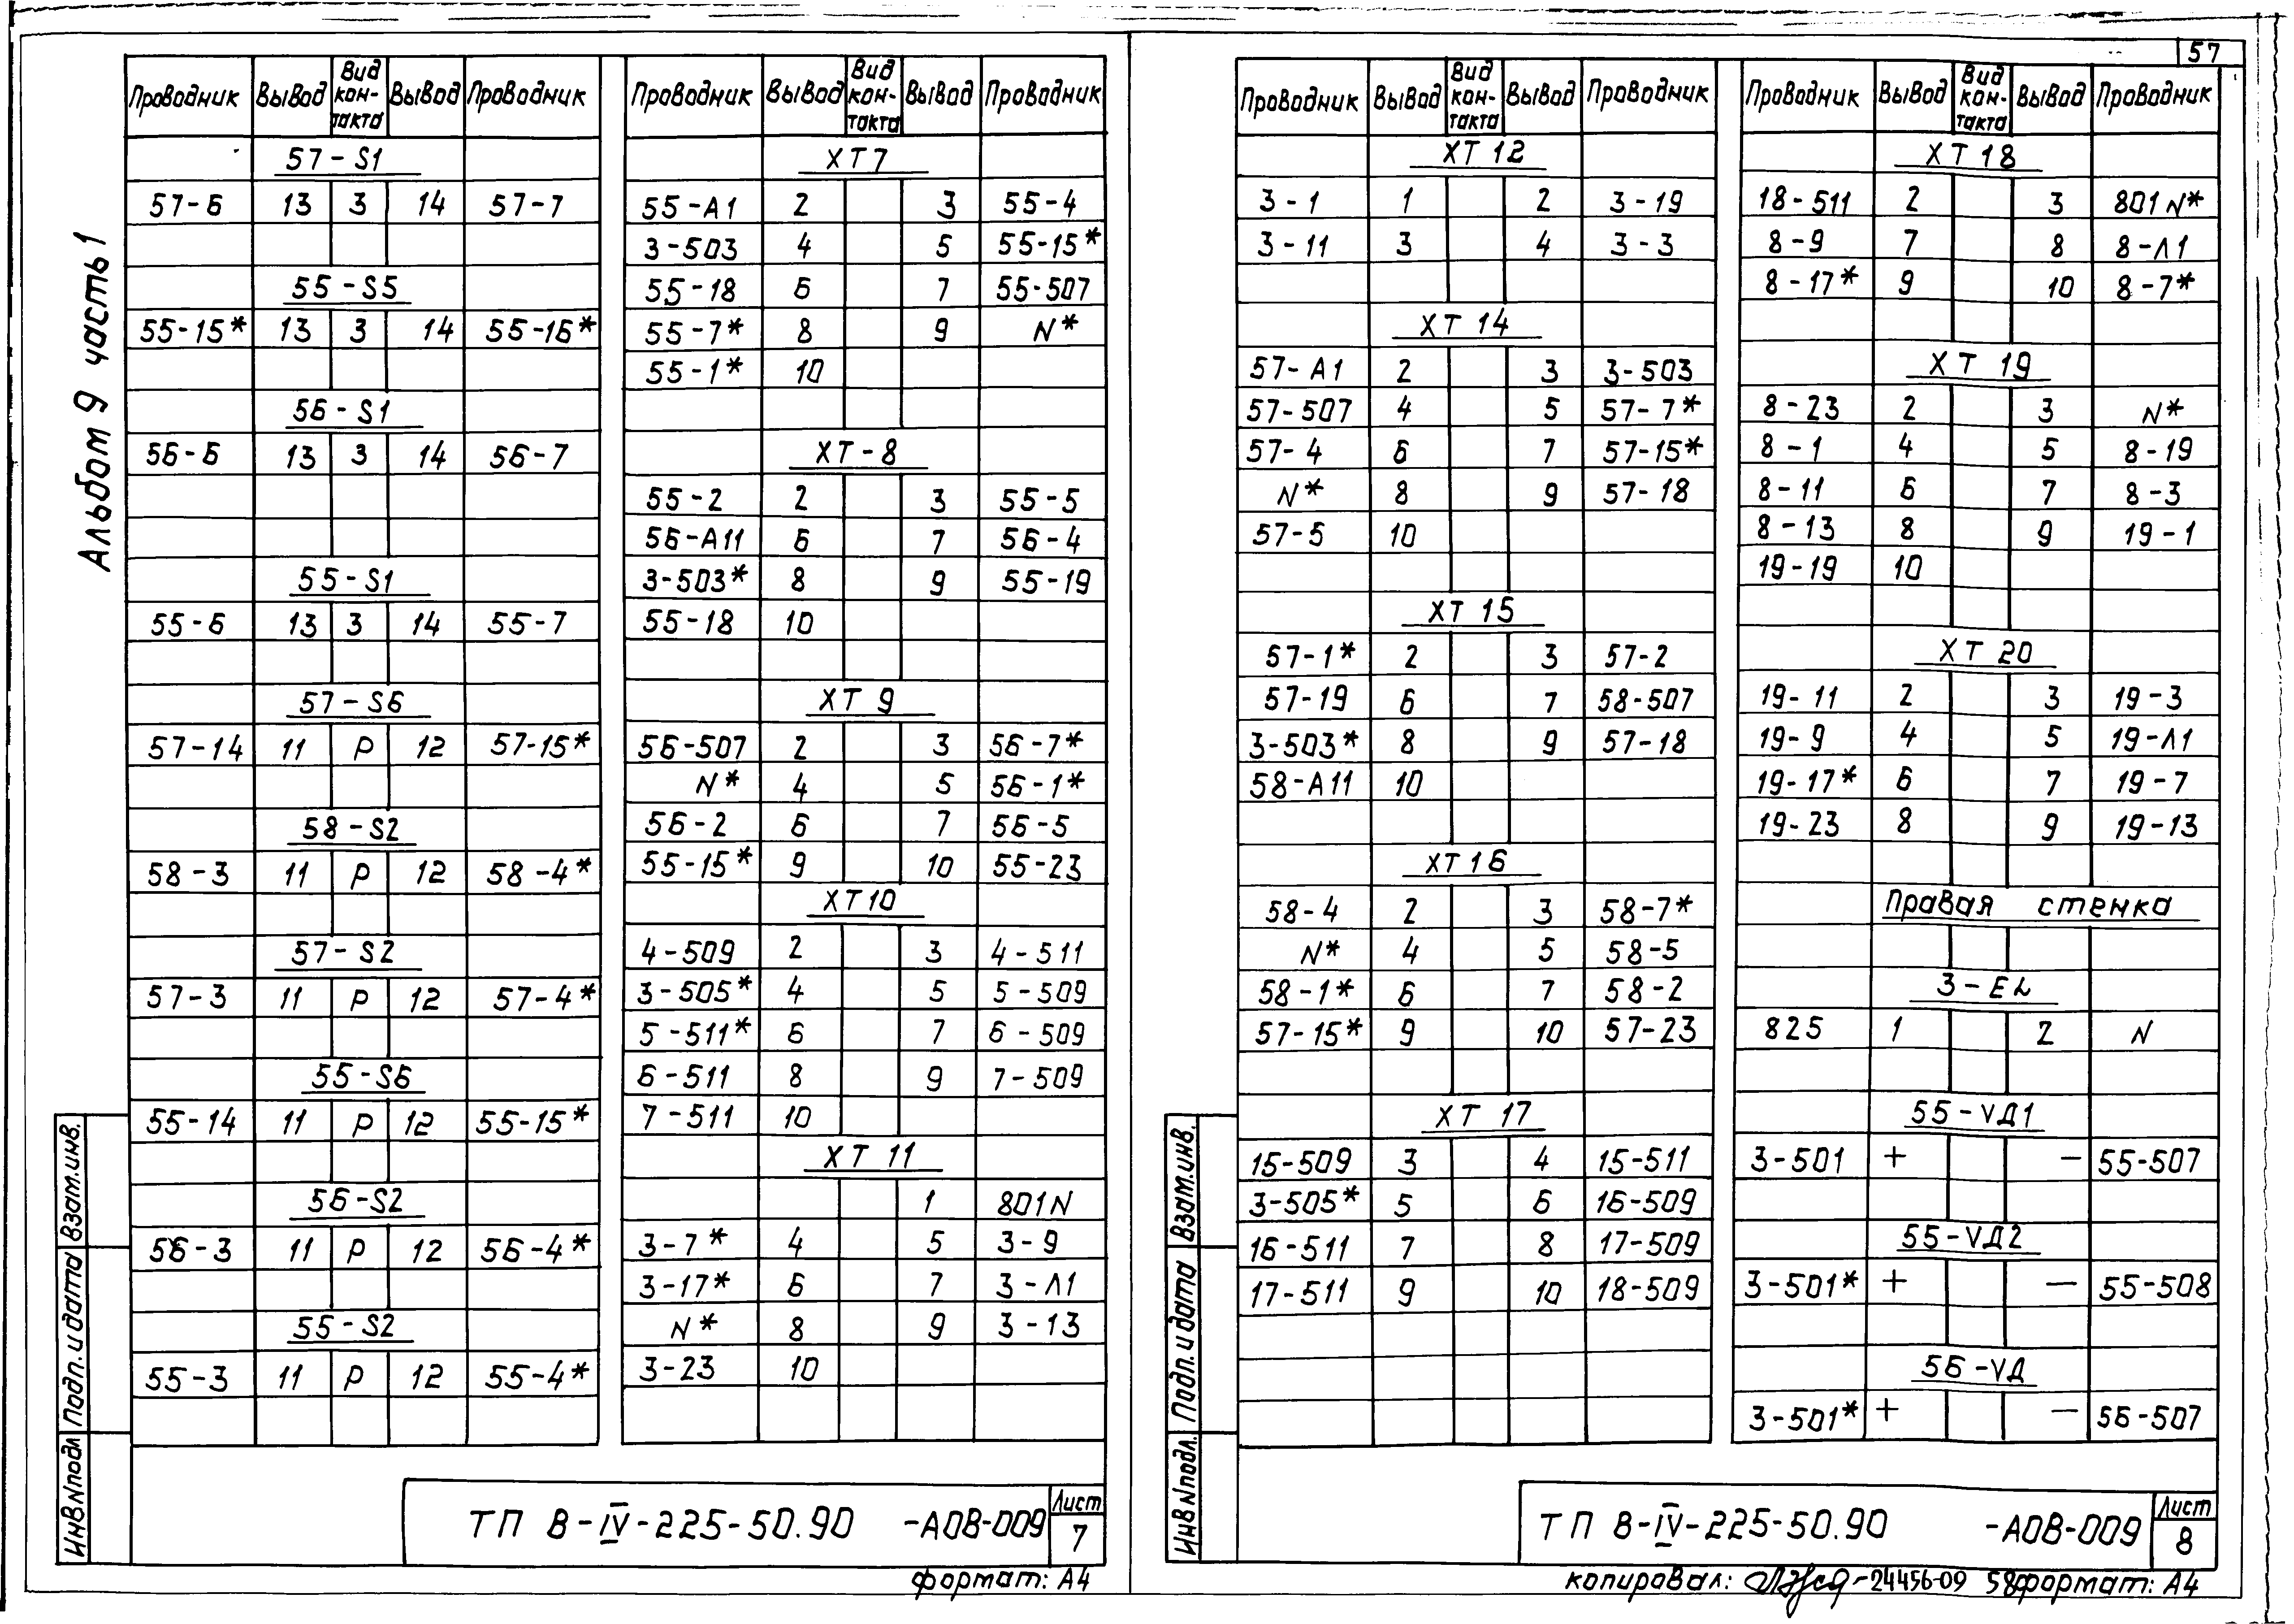 57
Альбом 9 часть 1
Проводник Вывод Вид кон-такта Вывод Проводник
57-S1
57-6 13 З 14 57-7
55-S5
55-15* 13 З 14 55-16*
56-S1
56-6 13 З 14 56-7
55-S1
55-6 13 З 14 55-7
57-S6
57-14 11 Р 12 57-15*
58-S2
58-3 11 Р 12 58-4*
57-S2
57-3 11 Р 12 57-4*
55-S6
55-14 11 Р 12 55-15*
56-S2
56-3 11 Р 12 56-4*
55-S2
55-3 11 Р 12 55-4*
Проводник Вывод Вид кон-такта Вывод Проводник
XT7
55-А1 2 3 55-4
3-503 4 5 55-15*
55-18 6 7 55-507
55-7* 8 9 N*
55-1* 10
XT-8
55-2 2 3 55-5
56-А11 6 7 56-4
3-503* 8 9 55-19
55-18 10
XT 9
56-507 2 3 56-7*
N* 4 5 56-1*
56-2 6 7 56-5
55-15* 9 10 55-23
XT10
4-509 2 3 4-511
3-505* 4 5 5-509
5-511* 6 7 6-509
6-511 8 9 7-509
7-511 10
XT 11
1 801N
3-7* 4 5 3-9
3-17* 6 7 3-Л1
N* 8 9 3-13
3-23 10
Взам.инв.
Подп.и дата
Инв N подл
ТП В-IV-225-50.90 -АОВ-009
Лист
7
формат: А4
Проводник Вывод Вид кон-такта Вывод Проводник
XT 12
3-1 1 2 3-19
3-11 3 4 3-3
XT 14
57-А1 2 3 3-503
57-507 4 5 57-7*
57-4 6 7 57-15*
N* 8 9 57-18
57-5 10
XT 15
57-1* 2 3 57-2
57-19 6 7 58-507
3-503* 8 9 57-18
58-А11 10
XT16
58-4 2 3 58-7*
N* 4 5 58-5
58-1* 6 7 58-2
57-15* 9 10 57-23
XT 17
15-509 3 4 15-511
3-505* 5 6 16-509
16-511 7 8 17-509
17-511 9 10 18-509
Проводник Вывод Вид кон-такта Вывод Проводник
XT 18
18-511 2 3 801N*
8-9 7 8 8-Л1
8-17* 9 10 8-7*
XT 19
8-23 2 3 N*
8-1 4 5 8-19
8-11 6 7 8-3
8-13 8 9 19-1
19-19 10
XT 20
19-11 2 3 19-3
19-9 4 5 19-Л1
19-17* 6 7 19-7
19-23 8 9 19-13
Правая стенка
3-EL
825 1 2 N
55-VД1
3-501 + — 55-507
55-VД2
3-501* + — 55-508
56-VД
3-501* + — 56-507
Взам.инв.
Подп.и дата
Инв N подл.
ТП В-IV-225-50.90 -АОВ-009
Лист
8
копировал: -24456-09 58 формат: А4